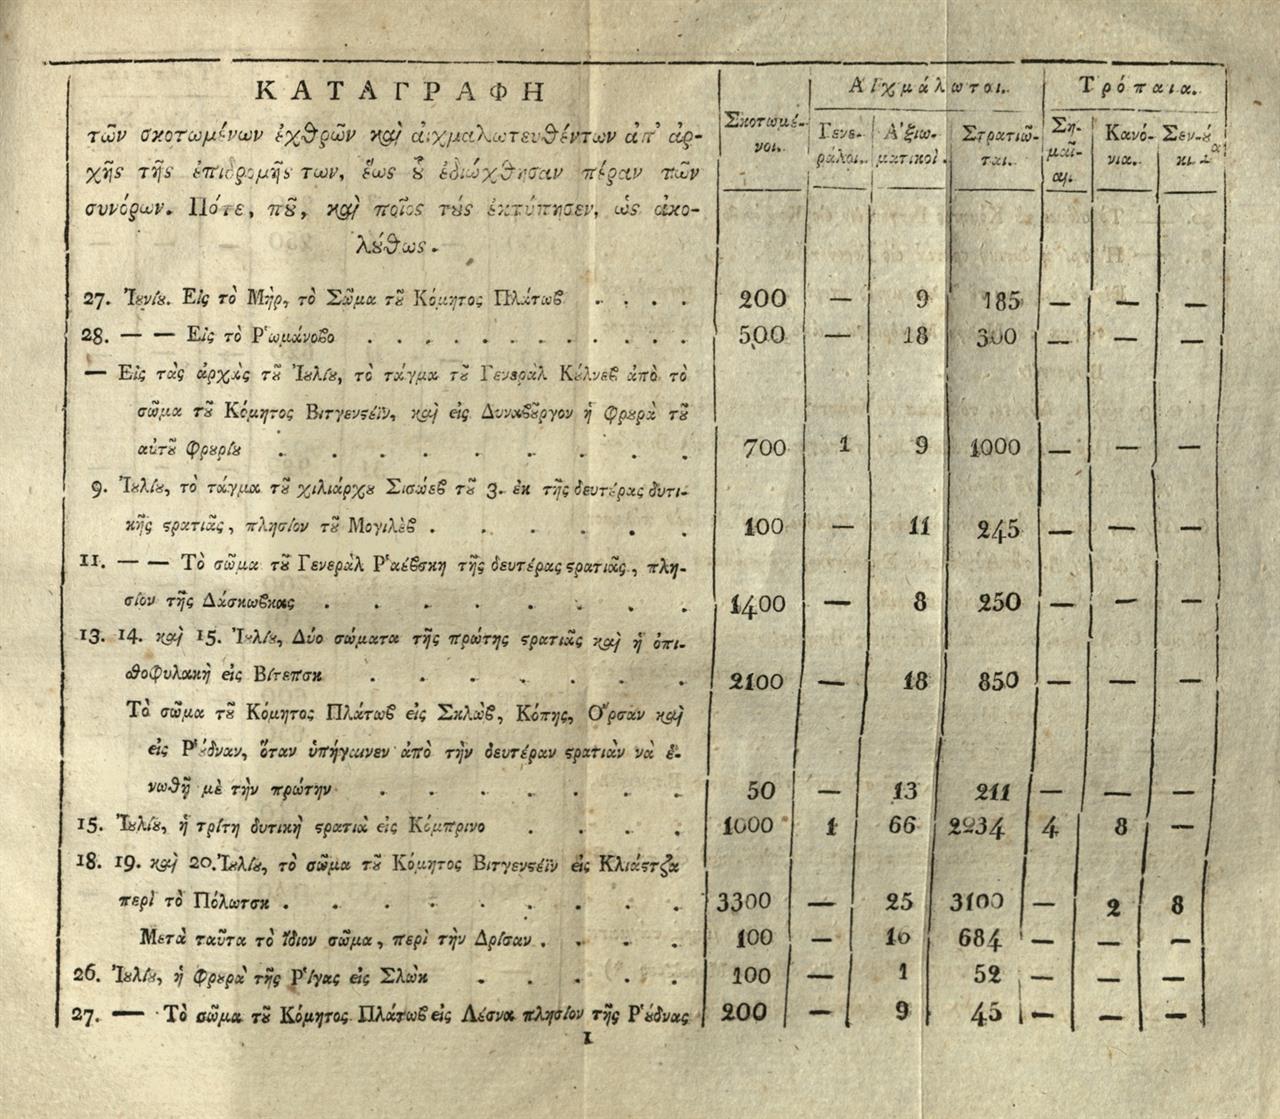 ΚΑΤΑΓΡΑΦΗ
τῶν σκοτωμένων ἐχθρῶν καὶ αἰχμαλωτευθέντων ἀπ' ἀρ-
χῆς τῆς ἐπιδρομῆς των, ἕως ȣ̔͂ ἐδιώχθησαν πέραν τῶν
συνόρων. Πότε, πȣ͂, καὶ ποῖος τȣ́ς ἐκτύπησεν, ὡς ἀκο-
λȣ́θως.
Σκοτωμέ-
νοι.
Αἰχμάλωτοι.
Γενε-
ράλοι.
Ἀξιω-
ματικοὶ.
Στρατιῶ-
ται.
Τρόπαια.
Ση-
μαῖ-
αι.
Κανό-
νια.
27. Ἰȣνίȣ. Εἰς τὸ Μὴρ, τὸ Σῶμα τȣ͂ Κόμητος Πλάτωβ . . . . 200 — 9 185 — — —
28. — — Εἰς τὸ Ῥωμάνοβο . . . . . . . . . . . 500 — 18 300 — — —
— Εἰς τὰς ἀρχὰς τȣ͂ Ἰȣλίȣ, τὸ τάγμα τȣ͂ Γενεράλ Κȣ́λνεβ ἀπὸ τὸ
σῶμα τȣ͂ Κόμητος Βιτγενϛέϊν, καὶ εἰς Δυναβȣ͂ργον ἡ φρȣρὰ τȣ͂
αὐτȣ͂ φρȣρίȣ . . . . . . . . . 700 1 9 1000 — — —
9. Ἰȣλίȣ, τὸ τάγμα τȣ͂ χιλιάρχȣ Σισάεβ τȣ͂ 3. ἐκ τῆς δευτέρας δυτι-
κῆς ϛρατιᾶς, πλησίον τȣ͂ Μογιλὲβ . . . . . . 100 — 11 245 — — —
11. — — Τὸ σῶμα τȣ͂ Γενεράλ Ῥαέβσκη τῆς δευτέρας ϛρατιᾶς, πλη-
σίον τῆς Δάσκωβκας . . . . . . . . 1400 — 8 250 — — —
13. 14. καὶ 15. Ἰȣλίȣ, Δύο σώματα τῆς πρώτης ϛρατιᾶς καὶ ἡ ὀπι-
σθοφυλακὴ εἰς Βίτεπσκ . . . . . . . 2100 — 18 850 — — —
Τὸ σῶμα τȣ͂ Κόμητος Πλάτωβ εἰς Σκλὼβ, Κόπης, Ὄρσαν καὶ
εἰς Ῥȣ́δναν, ὅταν ὑπήγαινεν ἀπὸ τὴν δευτέραν ϛρατιὰν νὰ ἑ-
νωθῇ μὲ τὴν πρώτην . . . . . . . 50 — 13 211 — — —
15. Ἰȣλίȣ, ἡ τρίτη δυτικὴ ϛρατιὰ εἰς Κόμπρινο . . . . 1000 1 66 2234 4 8 —
18. 19. καὶ 20. Ἰȣλίȣ, τὸ σῶμα τȣ͂ Κόμητος Βιτγενϛέϊν εἰς Κλιάϛτζα
περὶ τὸ Πόλωτσκ . . . . . . . . . 3300 — 25 3100 — 2 8
Μετὰ ταῦτα τὸ ἴδιον σῶμα, περὶ τὴν Δρίσαν . . . . 100 — 16 684 — — —
26. Ἰȣλίȣ, ἡ φρȣρὰ τῆς Ῥίγας εἰς Σλὼκ . . . . . 100 — 1 52 — — —
27. — Τὸ σῶμα τȣ͂ Κόμητος Πλάτωβ εἰς Λέσνα πλησίον τῆς Ῥȣ́δνας 200 — 9 45 — — —
1